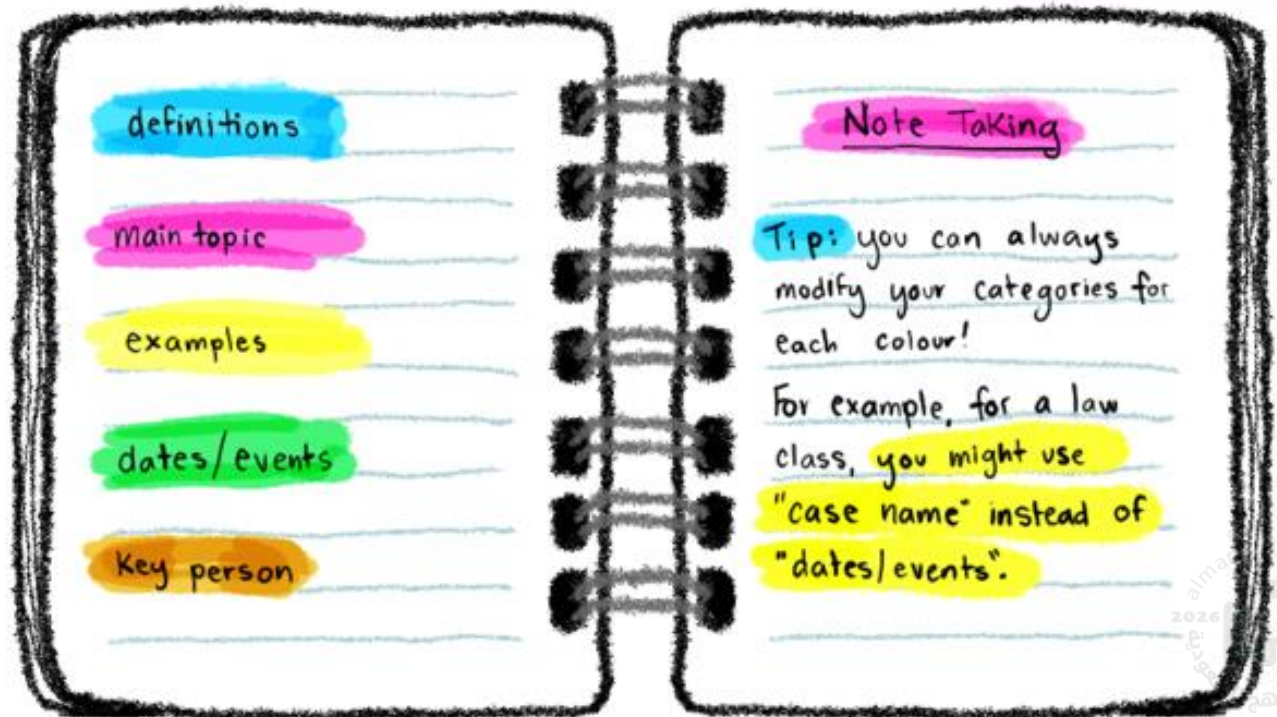 definitions
main topic
examples
dates/events
Key person
Note Taking
Tip: you can always
modify your categories for
each colour!
For example, for a law
class, you might use
"case name" instead of
"dates/events".
2026